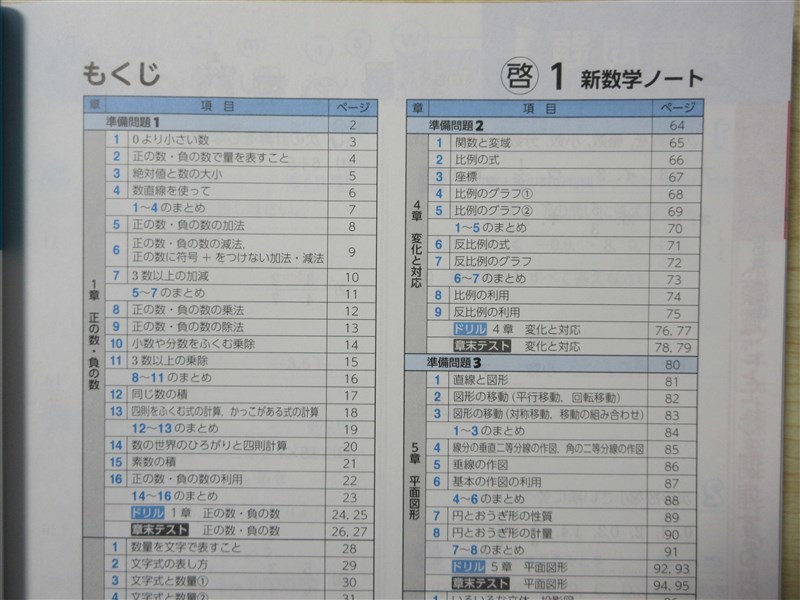 もくじ
啓 1 新数学ノート
章 項目 ページ
準備問題1 2
1章 正の数・負の数
1 0より小さい数 3
2 正の数・負の数で量を表すこと 4
3 絶対値と数の大小 5
4 数直線を使って 6
1〜4のまとめ 7
5 正の数・負の数の加法 8
6 正の数・負の数の減法,
正の数に符号+をつけない加法・減法 9
7 3数以上の加減 10
5〜7のまとめ 11
8 正の数・負の数の乗法 12
9 正の数・負の数の除法 13
10 小数や分数をふくむ乗除 14
11 3数以上の乗除 15
8〜11のまとめ 16
12 同じ数の積 17
13 四則をふくむ式の計算,かっこがある式の計算 18
12〜13のまとめ 19
14 数の世界のひろがりと四則計算 20
15 素数の積 21
16 正の数・負の数の利用 22
14〜16のまとめ 23
ドリル 1章 正の数・負の数 24, 25
章末テスト 正の数・負の数 26, 27
1 数量を文字で表すこと 28
2 文字式の表し方 29
3 文字式と数量① 30
4 文字式と数量② 31
章 項目 ページ
準備問題2 64
4章 変化と対応
1 関数と変域 65
2 比例の式 66
3 座標 67
4 比例のグラフ① 68
5 比例のグラフ② 69
1〜5のまとめ 70
6 反比例の式 71
7 反比例のグラフ 72
6〜7のまとめ 73
8 比例の利用 74
9 反比例の利用 75
ドリル 4章 変化と対応 76, 77
章末テスト 変化と対応 78, 79
準備問題3 80
5章 平面図形
1 直線と図形 81
2 図形の移動(平行移動,回転移動) 82
3 図形の移動(対称移動,移動の組み合わせ) 83
1〜3のまとめ 84
4 線分の垂直二等分線の作図,角の二等分線の作図 85
5 垂線の作図 86
6 基本の作図の利用 87
4〜6のまとめ 88
7 円とおうぎ形の性質 89
8 円とおうぎ形の計量 90
7〜8のまとめ 91
ドリル 5章 平面図形 92, 93
章末テスト 平面図形 94, 95
1 いろいろな立体